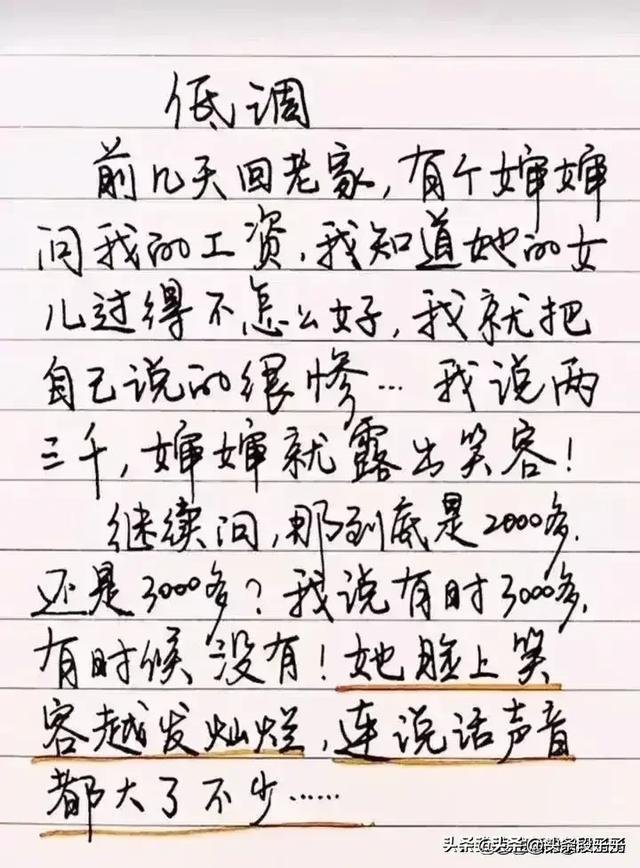 低调
前几天回老家,有个婶婶
问我的工资,我知道她的女
儿过得不怎么好,我就把
自己说的很惨…我说两
三千,婶婶就露出笑容!
继续问,那到底是2000多,
还是3000多?我说有时3000多,
有时候没有!她脸上笑
容越发灿烂,连说话声音
都大了不少……